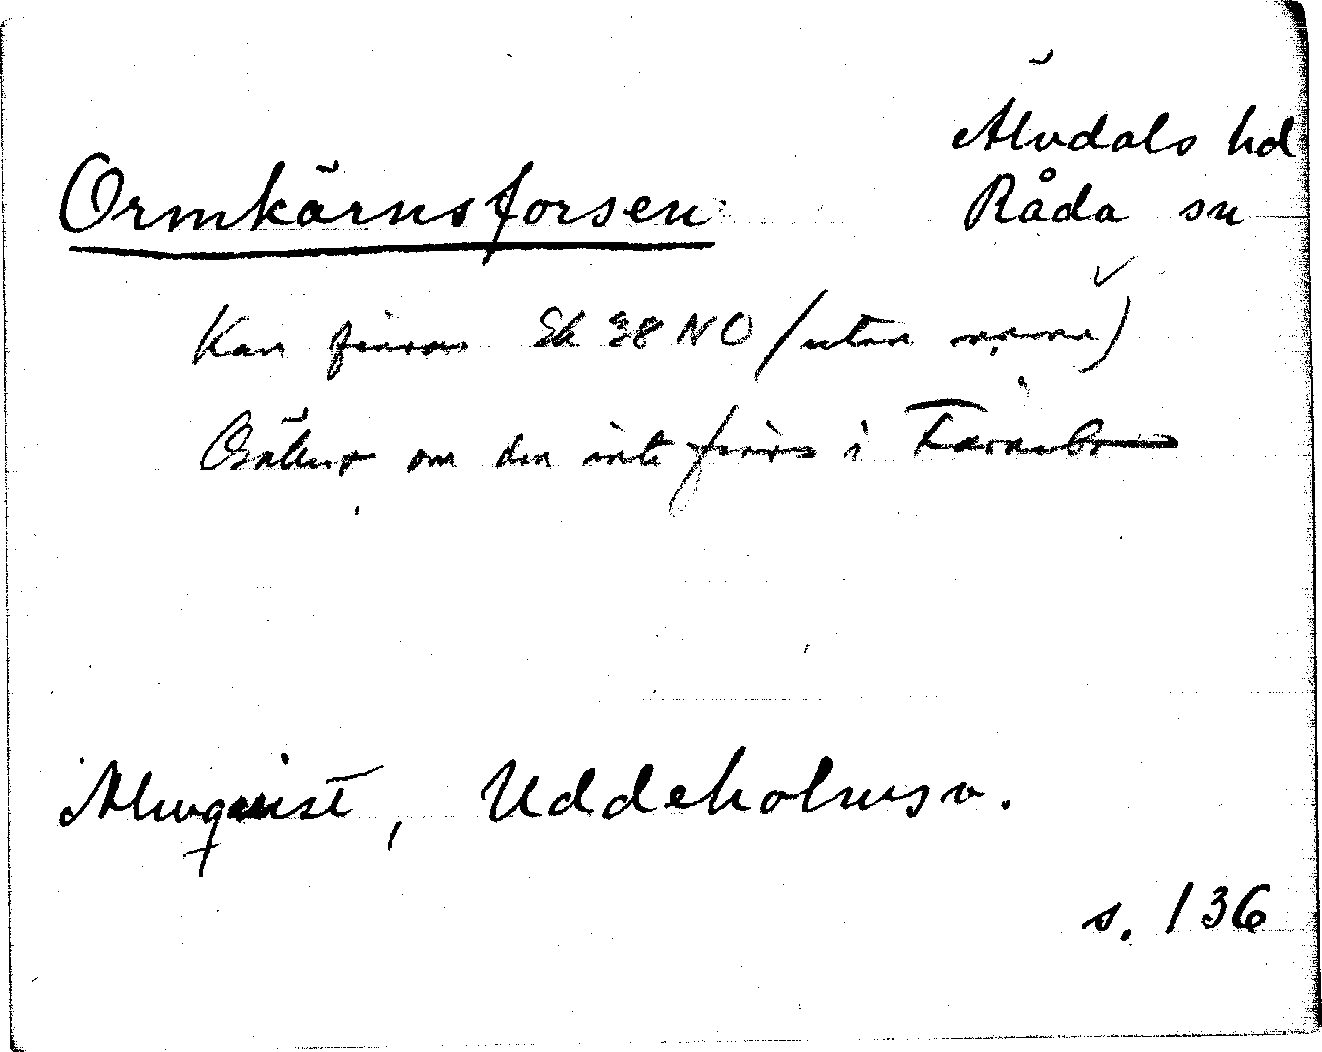 Älvdals hd
Ormkärnsforsen
Råda sn
Kan finnas Ek 38 NO (utan namn)
Osäkert om den inte finns i Färnebo
Almquist, Uddeholmsv.
s. 136